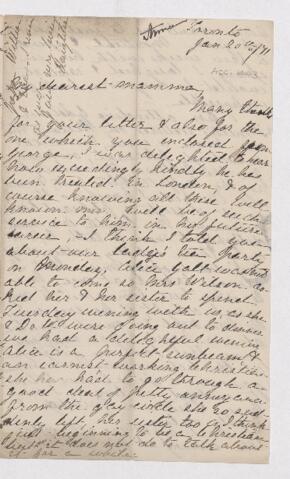 Toronto
Jan 20th/71
My dearest mamma,
Many thanks
for your letter & also for the
one which you enclosed from
George, I was delighted to hear
how exceedingly kindly he has
been treated. In London, & of
course knowing all these well
known men will be of such
service to him in his future
career, I think I told you
about our ladies tea party
on Monday, Alice Galt was not
able to come so Mrs Wilson
had her & her sister to spend
Tuesday evening with us, as she
& Do were going out to dinner
we had a delightful evening
Alice is a perfect sunbeam &
an earnest working Christian
she has had to go through a
good deal of petty annoyance
from the gay circle she so sud-
denly left. her sister too I think
is just beginning to be a Christian
but it does not do to talk about
it for a while.